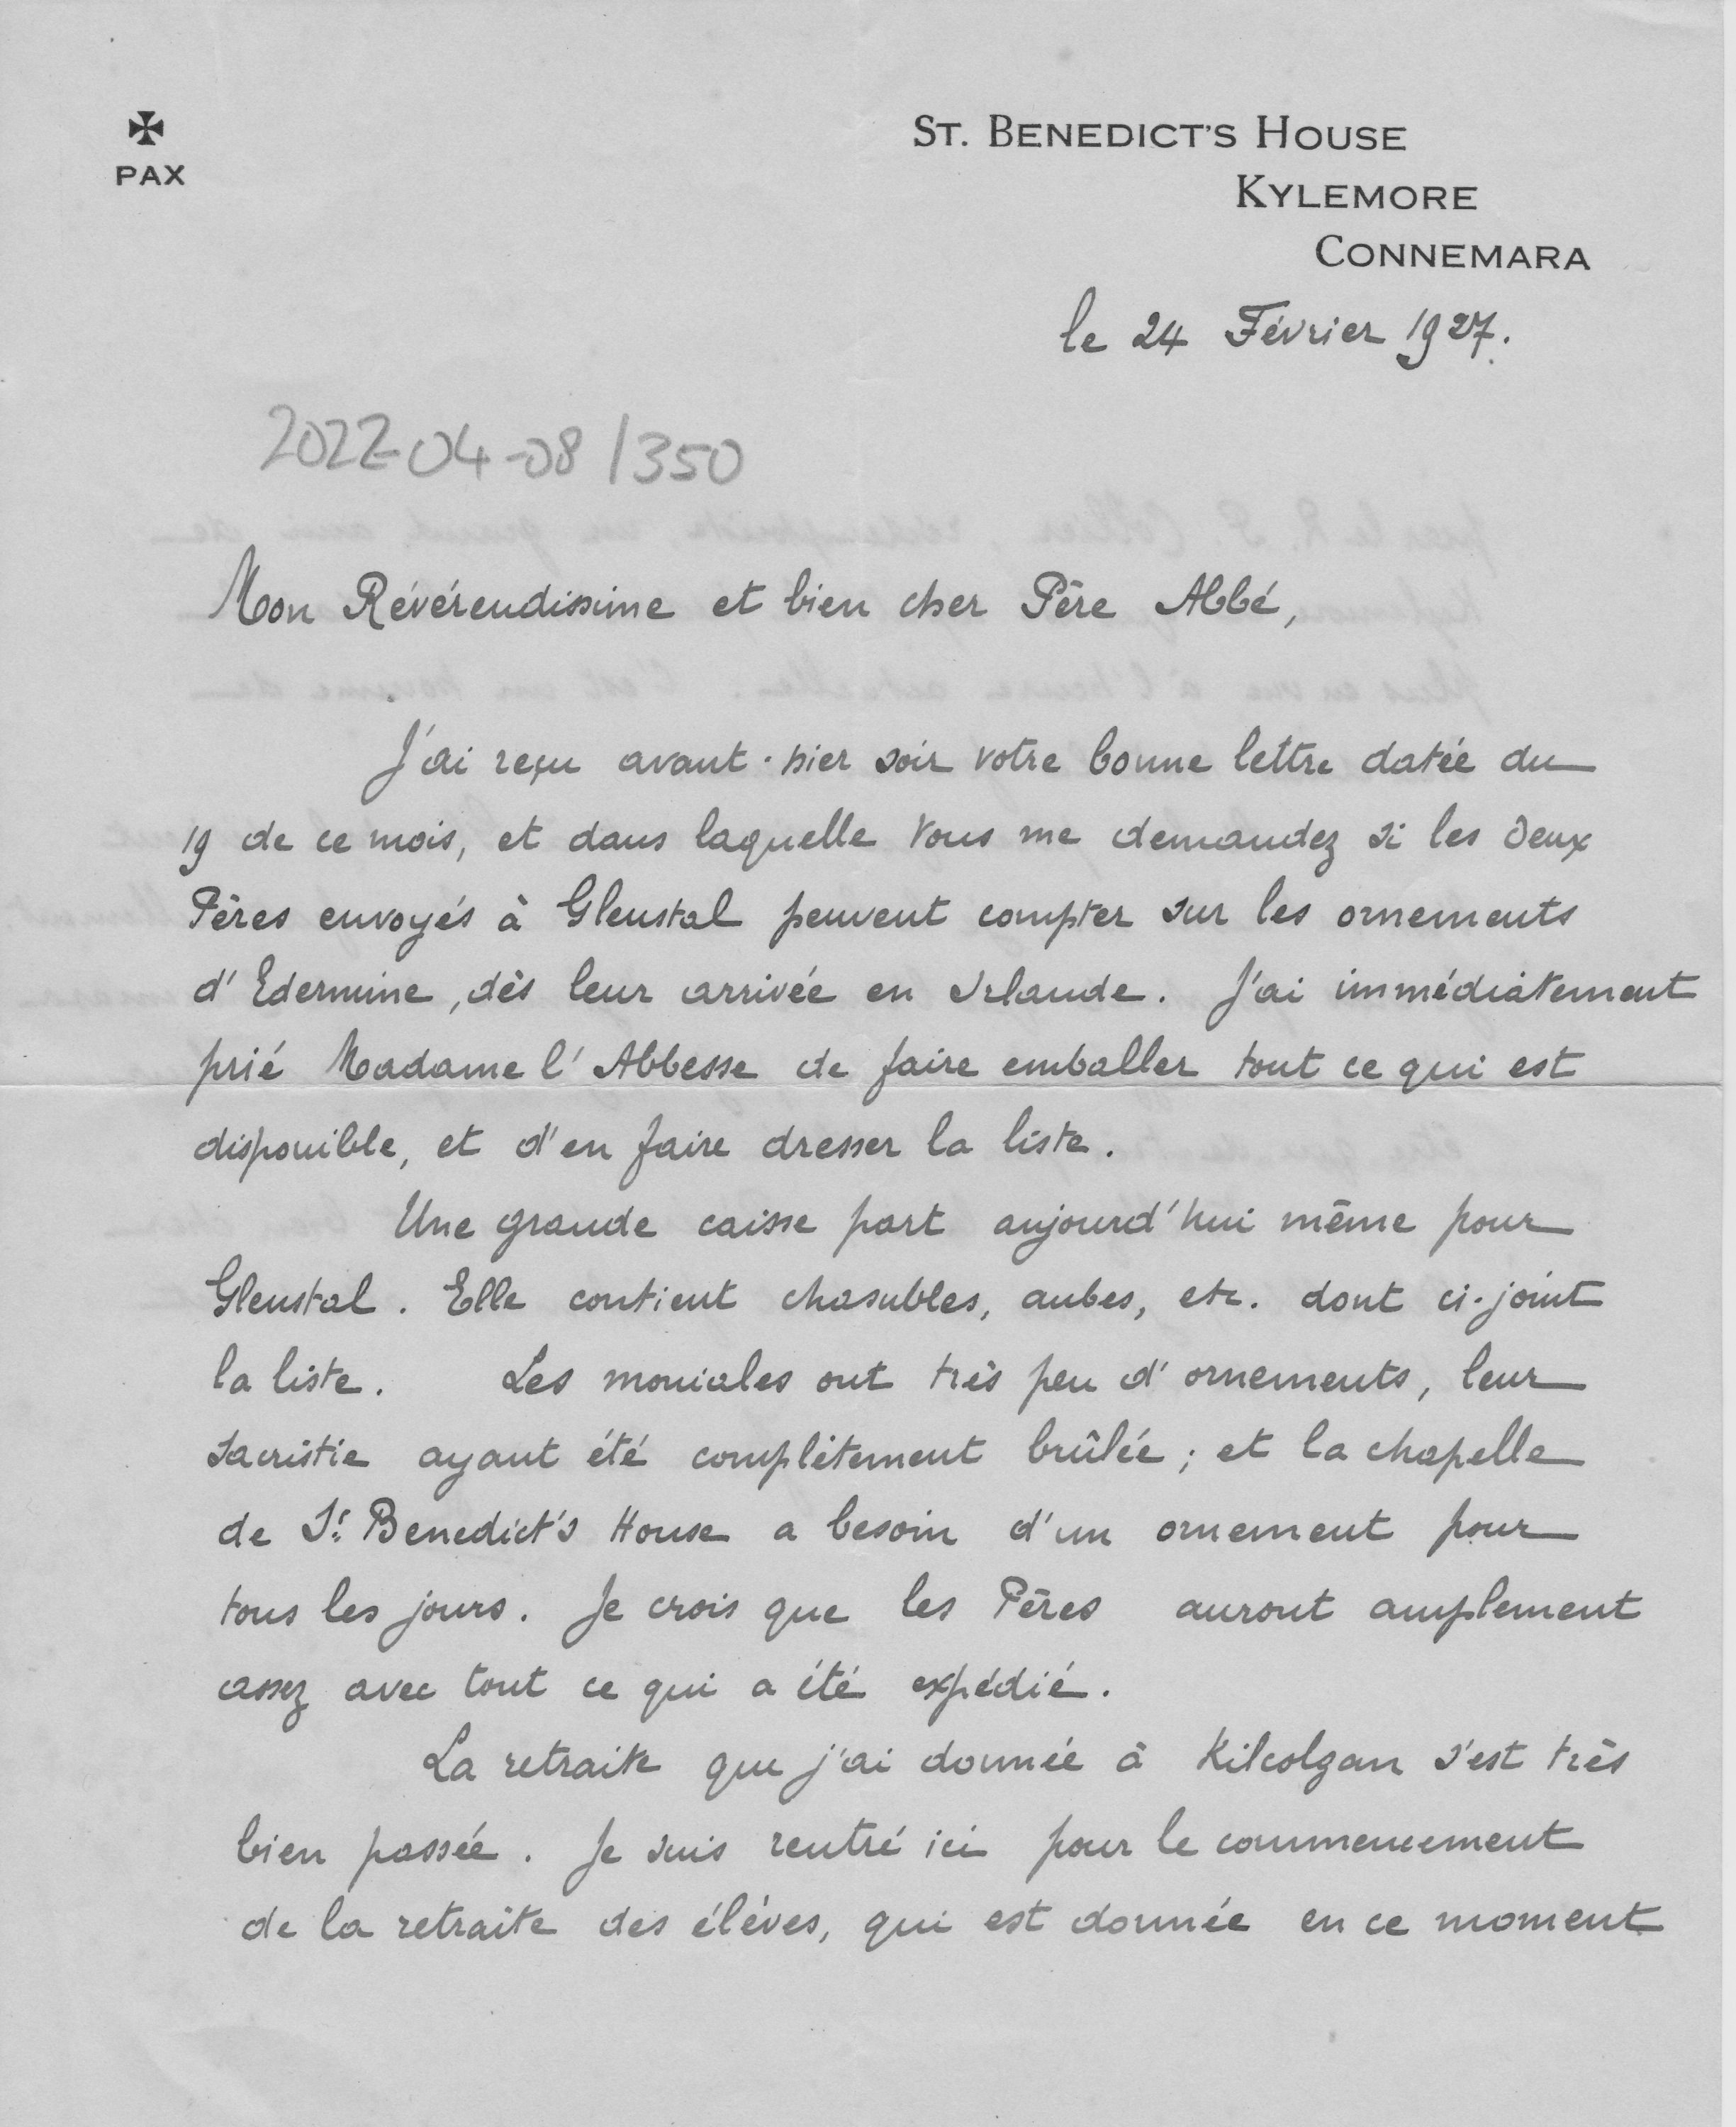 ✠
PAX
ST. BENEDICT'S HOUSE
KYLEMORE
CONNEMARA
le 24 Février 1927.
2022-04-08/350
Mon Révérendissime et bien cher Père Abbé,
J'ai reçu avant-hier soir votre bonne lettre datée du
19 de ce mois, et dans laquelle Vous me demandez si les deux
Pères envoyés à Glenstal peuvent compter sur les ornements
d'Edermine, dès leur arrivée en Irlande. J'ai immédiatement
prié Madame l'Abbesse de faire emballer tout ce qui est
disponible, et d'en faire dresser la liste.
Une grande caisse part aujourd'hui même pour
Glenstal. Elle contient chasubles, aubes, etc. dont ci-joint
la liste. Les moniales ont très peu d'ornements, leur
sacristie ayant été complètement brûlée; et la chapelle
de St. Benedict's House a besoin d'un ornement pour
tous les jours. Je crois que les Pères auront amplement
assez avec tout ce qui a été expédié.
La retraite que j'ai donnée à Kilcolgan s'est très
bien passée. Je suis rentré ici pour le commencement
de la retraite des élèves, qui est donnée en ce moment